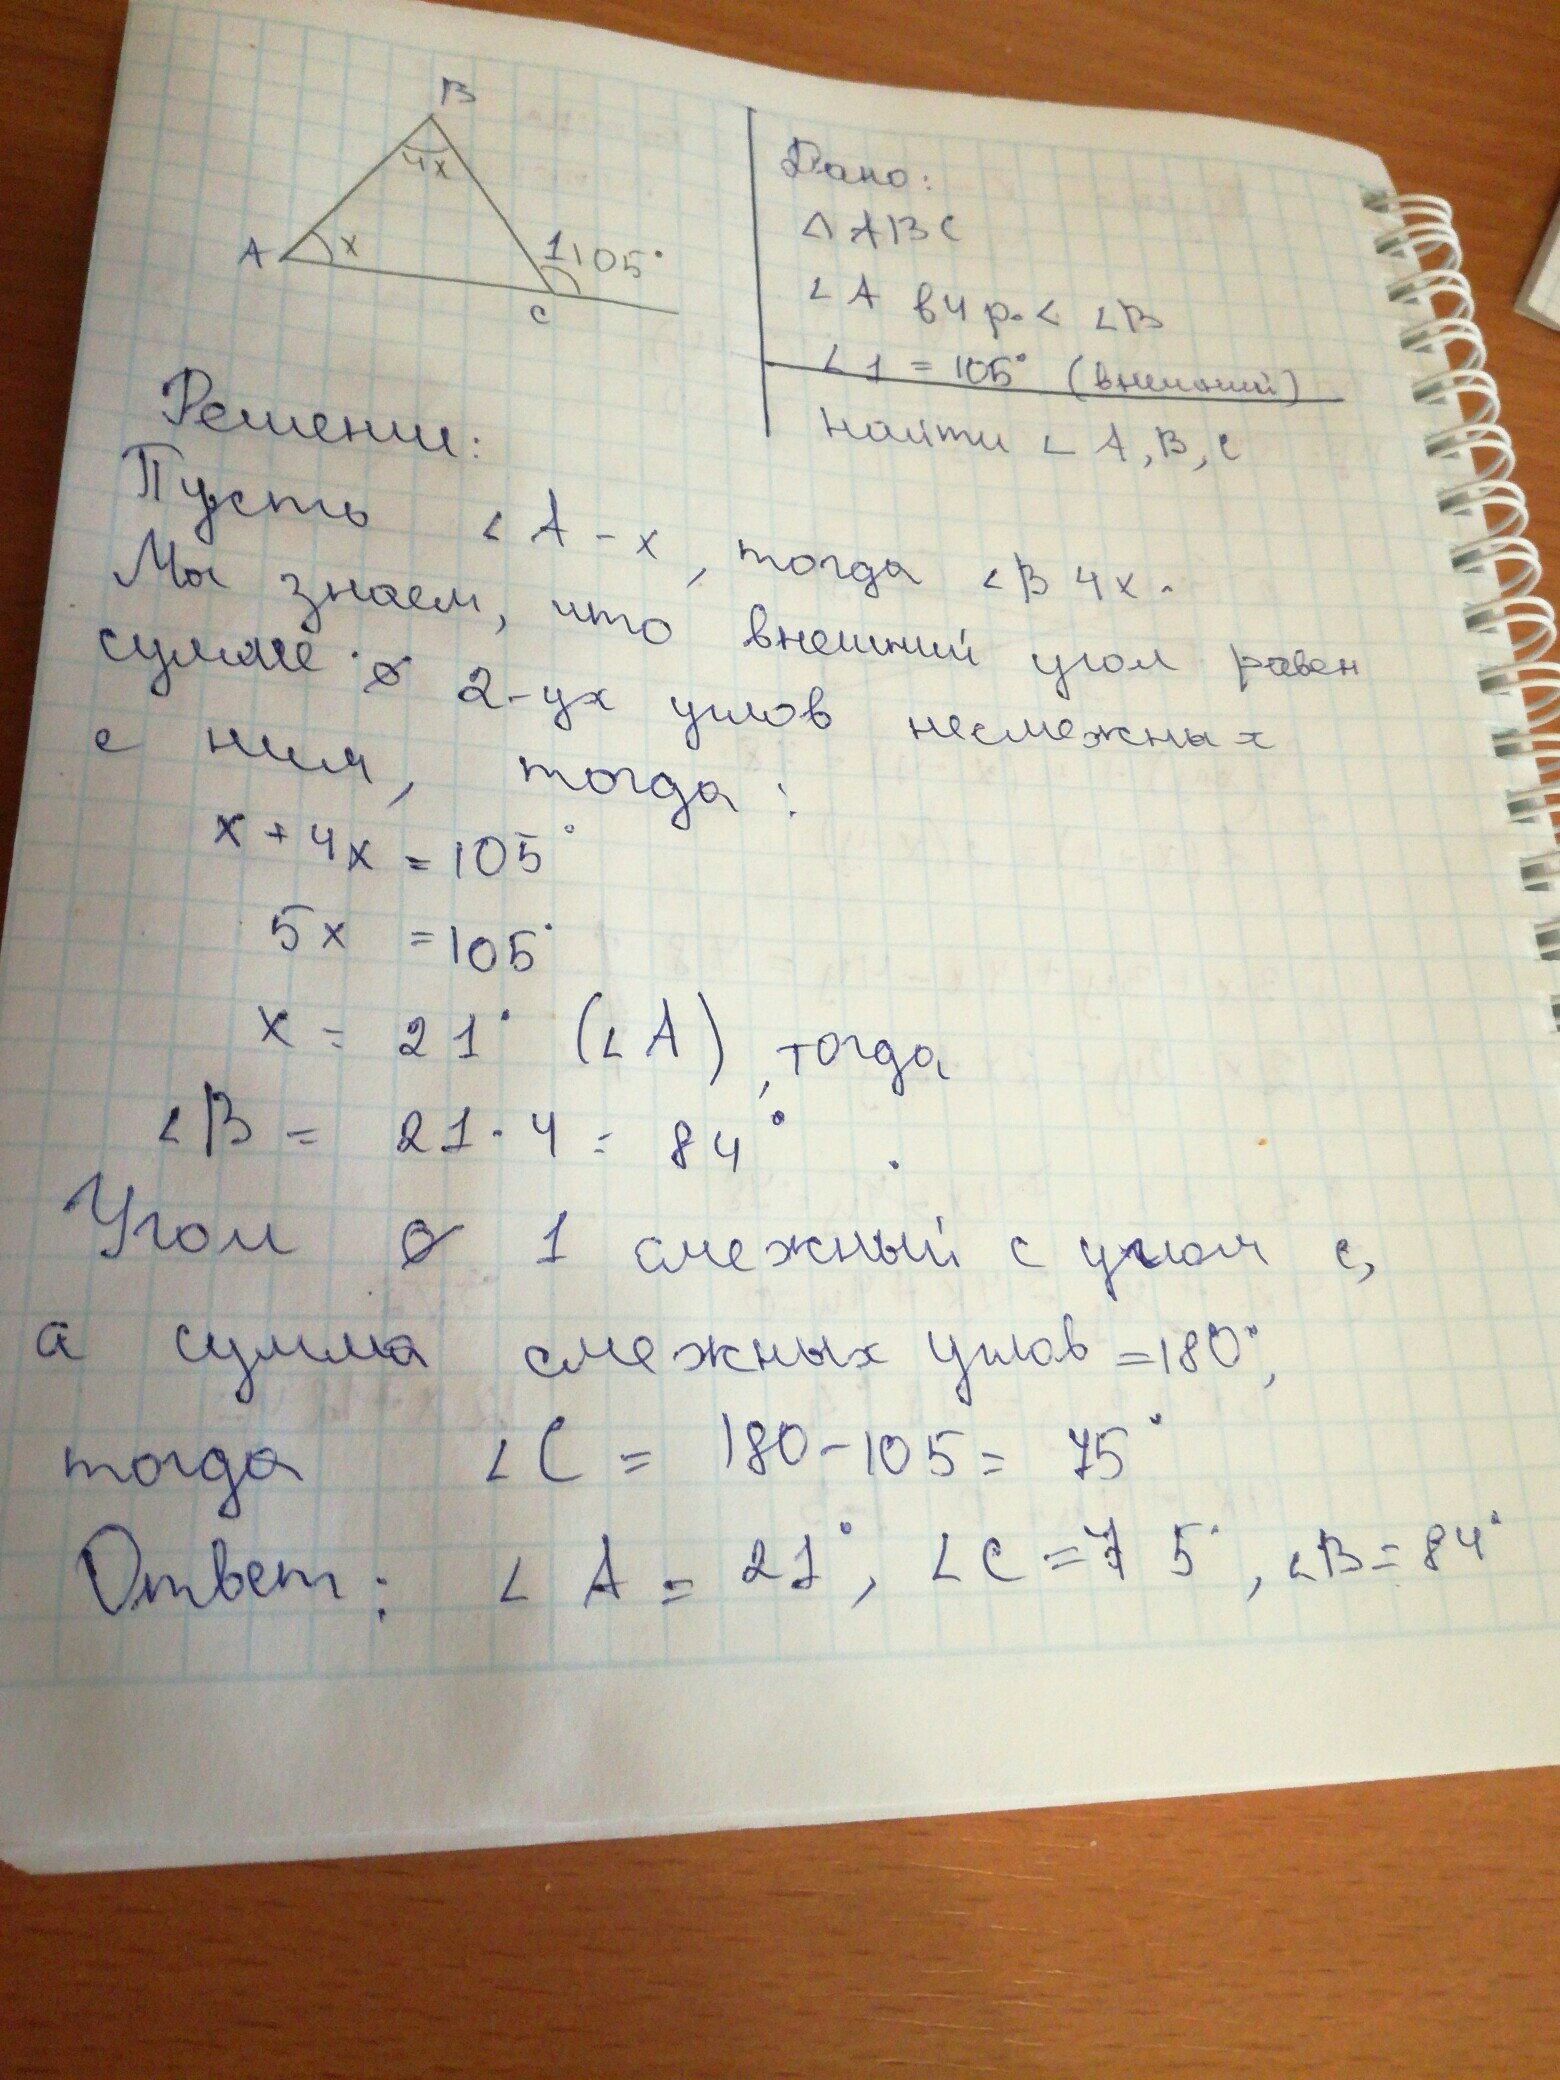 B
4x
A x 1 105°
C
Дано:
△ ABC
∠A в 4 р. < ∠B
∠1 = 105° (внешний)
Найти ∠ A, B, C
Решение:
Пусть ∠A - x, тогда ∠B 4x.
Мы знаем, что внешний угол равен
сумме 2-ух углов несмежных
с ним, тогда:
x + 4x = 105°
5x = 105°
x = 21° (∠A), тогда
∠B = 21 · 4 = 84°.
Угол 1 смежный с углом с,
а сумма смежных углов = 180°,
тогда ∠C = 180 - 105 = 75°
Ответ: ∠ A = 21°, ∠C = 75°, ∠B = 84°